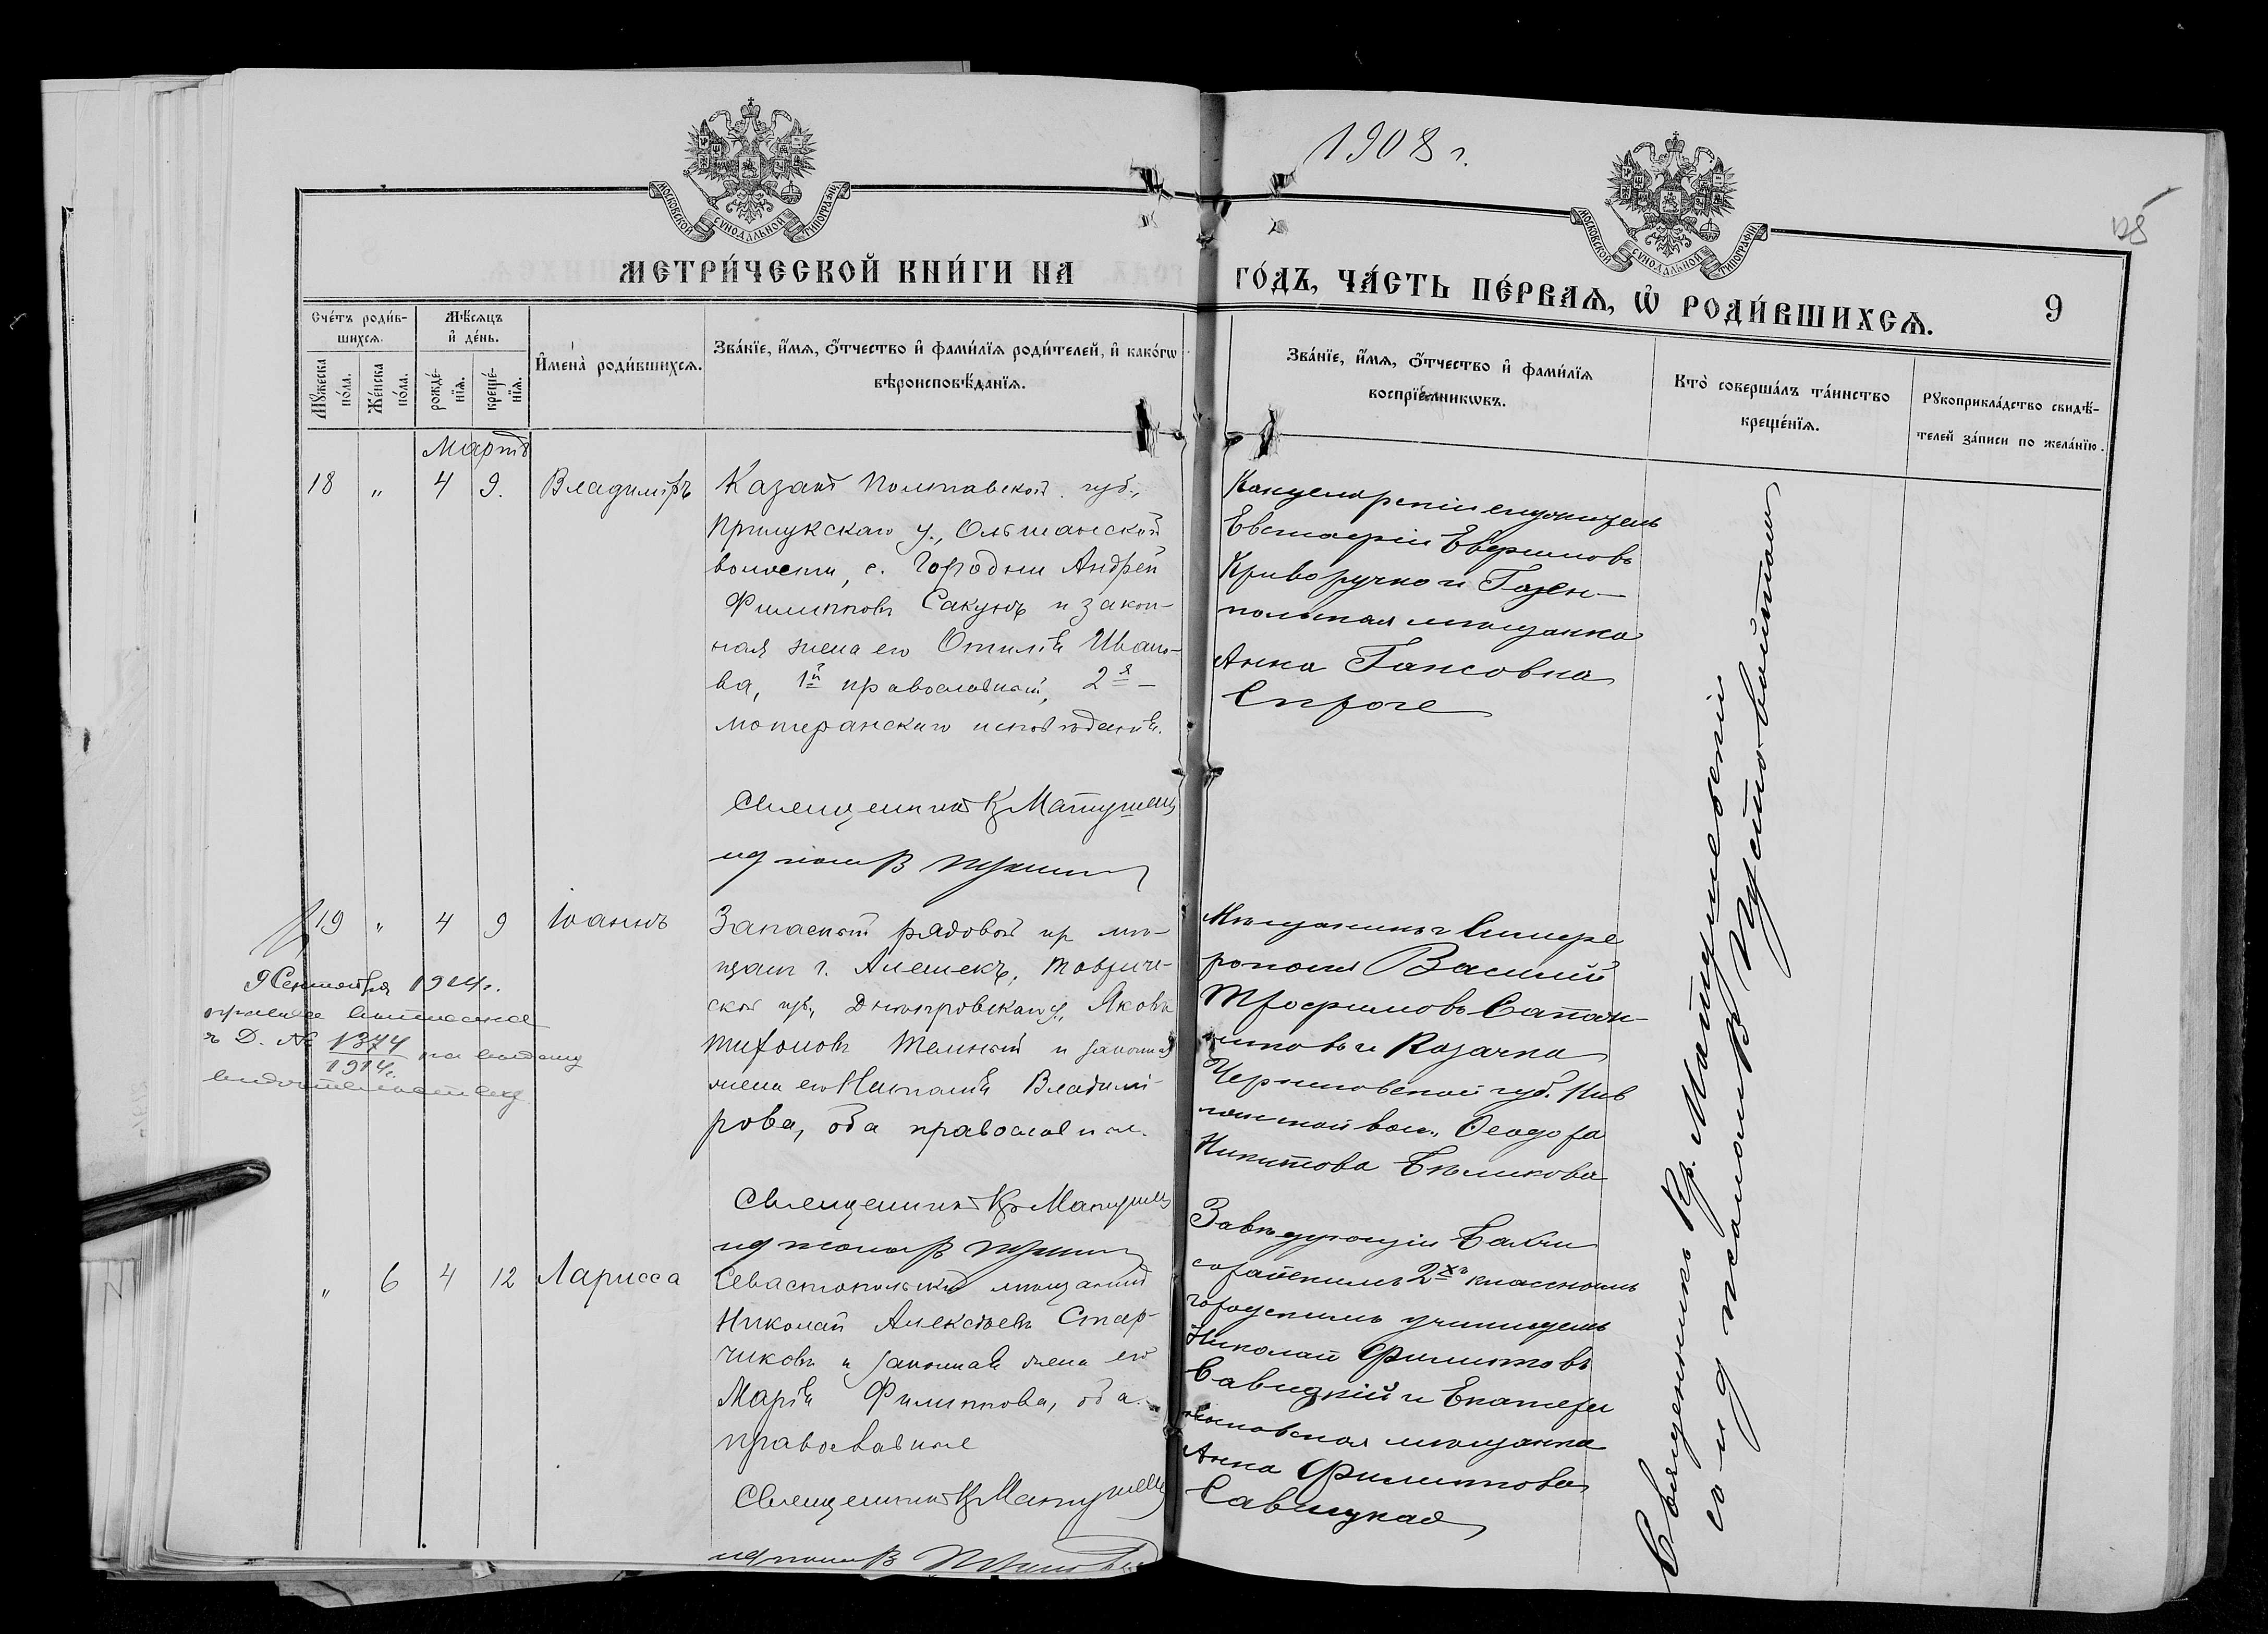 1908 г.
125
МОСКОВСКОЙ СУНОДАЛЬНОЙ ТИПОГРАФІИ
МОСКОВСКОЙ СУНОДАЛЬНОЙ ТИПОГРАФІИ
МЕТРИ́ЧЕСКОЙ КНИ́ГИ НА
ГО́ДЪ, ЧА́СТЬ ПЕ́РВАѦ, Ѡ РОДИ́ВШИХСѦ.
9
Сче́тъ роди́в-
шихсѧ.
Мꙋ́жеска
по́ла.
Же́нска
по́ла.
Мѣ́сѧцъ
и҆ де́нь.
рожде́-
нїѧ.
креще́-
нїѧ.
И҆мена̀ роди́вшихсѧ.
Зва́нїе, и҆́мѧ, ѻ҆́тчество и҆ фами́лїѧ роди́телей, и҆ како́гѡ
вѣроисповѣ́данїѧ.
Зва́нїе, и҆́мѧ, ѻ҆́тчество и҆ фами́лїѧ
воспрїе́мникѡвъ.
Кто̀ соверша́лъ та́инство
креще́нїѧ.
Рꙋкоприкла́дство свидѣ́-
телей за́писи по жела́нїю.
Мартъ
18 " 4 9. Владиміръ
Казакъ Полтавской губ.,
Прилукскаго у., Ольшанской
волости, с. Городни Андрей
Филипповъ Сакунъ и закон-
ная жена его Отилія Ивано-
ва, 1й православный, 2я –
лютеранскаго исповѣданія.
Священникъ Матушевс
Канцелярскій служитель
Евстафій Евфимовъ
Криворучко и Газен-
польская мѣщанка
Анна Гансовна
Спроге
19 " 4 9 Іоаннъ
9 Сентября 1914 г.
1374
1914 г.
Запасный рядовой из мѣ-
щанъ г. Алешекъ, Тавриче-
ской губ., Днѣпровскаго у., Яковъ
Тихоновъ Темный и законная
жена его Наталія Владимі-
рова, оба православные.
Священникъ Матушевс
Мѣщанинъ г. Симфе
рополя Василій
Трофимовъ
и Казачка
Черниговской губ.
вол. Ѳеодора
Никитова Бѣликова
" 6 4 12 Ларисса
Севастопольскій мѣщанинъ
Николай Алексѣевъ Стар-
чиковъ и законная жена его
Марія Филиппова, оба
православные
Священникъ Матушевс
Завѣдующій Бахчи
сарайскимъ 2хъ класснымъ
городскимъ училищемъ
Николай Филипповъ
Савицкій и Екатери
нославская мѣщанка
Анна Филиппова
Савицкая
Священникъ Кр. Матушевскій
съ и д псаломщ В Пустовойтом